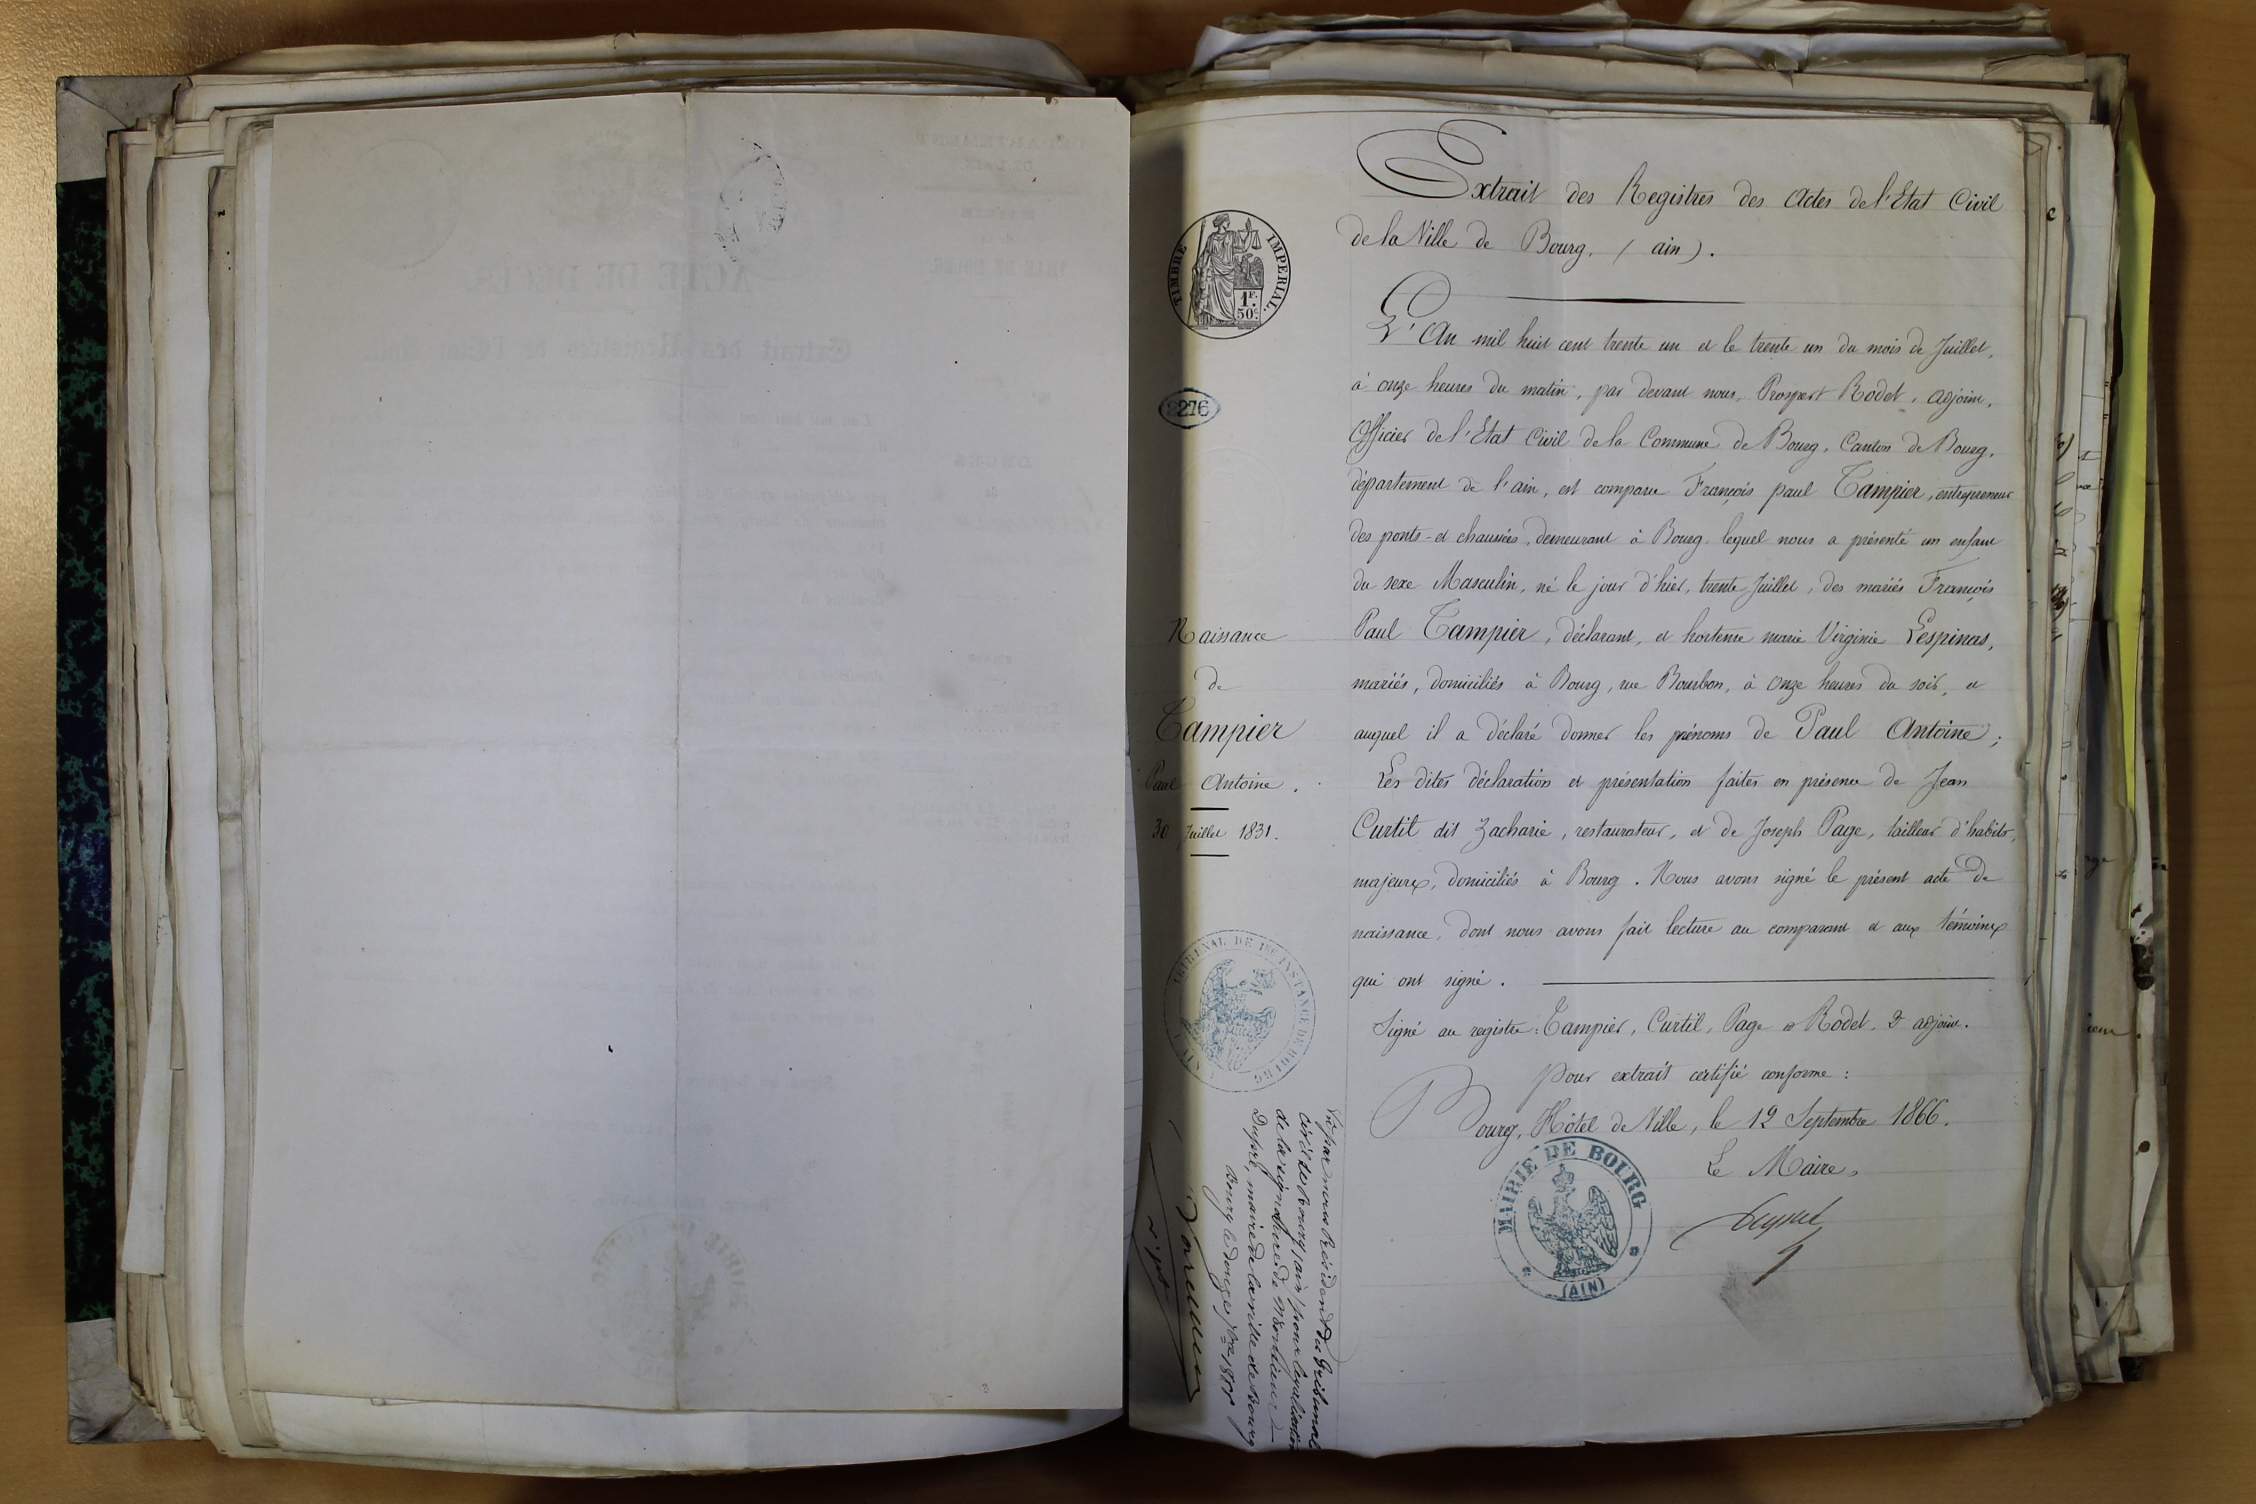 Extrait des Registres des Actes de l'Etat Civil
de la Ville de Bourg, (ain).
TIMBRE IMPERIAL.
1F. 50c.
2276
L'An mil huit cent trente un et le trente un du mois de Juillet,
à onze heures du matin, par devant nous, Prosper Rodet, adjoint,
Officier de l'Etat Civil de la Commune de Bourg, Canton de Bourg,
département de l'ain, est comparu François paul Tampier, entrepreneur
des ponts-et chaussées, demeurant à Bourg lequel nous a présenté un enfant
du sexe Masculin, né le jour d'hier, trente Juillet, des mariés François
Paul Tampier, déclarant, et hortense marie Virginie Lespinas,
mariés, domiciliés à Bourg, rue Bourbon, à onze heures du soir, et
auquel il a déclaré donner les prénoms de Paul Antoine;
Les dites déclaration et présentation faites en présence de Jean
Curtil dit Zacharie, restaurateur, et de Joseph Page, tailleur d'habits,
majeurs, domiciliés à Bourg. Nous avons signé le présent acte de
naissance, dont nous avons fait lecture au comparant et aux témoins
qui ont signé.
Signé au registre: Tampier, Curtil, Page et Rodet, adjoint.
Pour extrait certifié conforme:
Bourg, Hôtel de Ville, le 12 Septembre 1866.
Le Maire,
MAIRIE DE BOURG
(AIN)
Naissance
de
Tampier
Paul Antoine.
30 Juillet 1831.
TRIBUNAL DE 1RE INSTANCE DE BOURG
Vu par nous Président du Tribunal
civil de Bourg (ain) pour légalisation
de la signature de Monsieur
Dupré, maire de la ville de Bourg
Bourg le douze 7bre
ACTE DE DÉCÈS
Extrait des Registres de l'Etat Civil